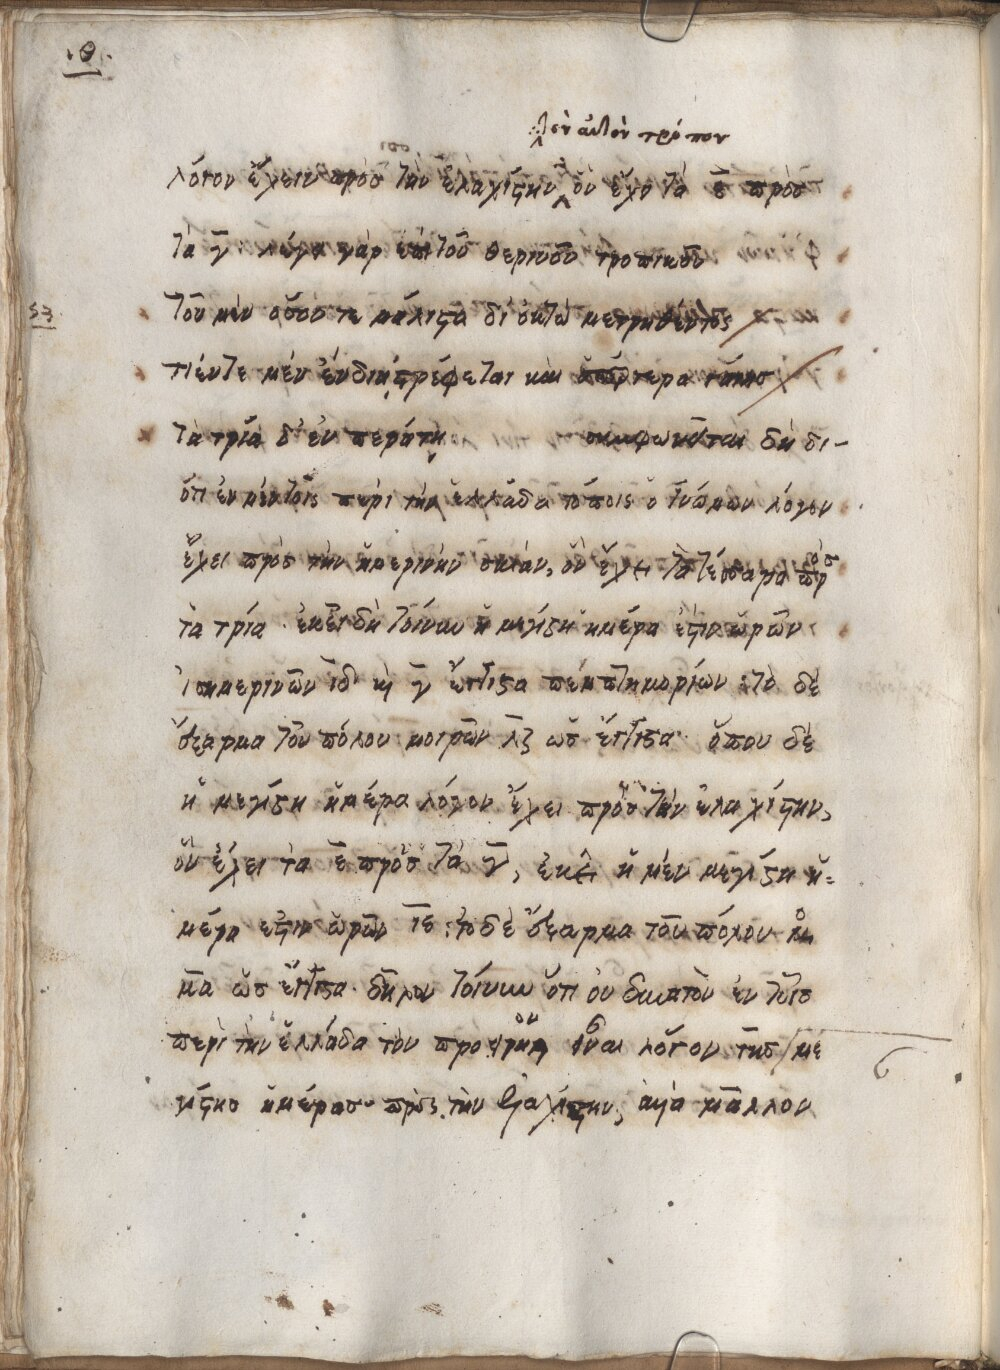 .θ.
τὸν αὐτὸν τρόπον
λόγον ἔχειν πρὸσ τὴν ἐλαχίστην ὃν ἔχει τὰ ε̄ πρὸσ
τὰ γ̄ λέγει γὰρ ἐπὶ τοῦ θερινοῦ τροπικοῦ
53
τοῦ μὲν ὅσον τε μάλιστα δι' ὀκτὼ μετρηθέντος
πέντε μὲν ἔνδια στρέφεται καὶ ὑπέρτερα γαίησ
τὰ τρία δ' ἐν περάτῃ συμφωνεῖται δὴ δι-
ότι ἐν μὲν τοῖς περὶ τὴν ἑλλάδα τόποις ὁ γνώμων λόγον
ἔχει πρὸσ τὴν ἡμερινὴν σκιάν, ὃν ἔχει τὰ τέσσαρα πρὸσ
τὰ τρία · ἐκεῖ δὴ τοίνυν ἡ μεγίστη ἡμέρα ἐστὶν ὡρῶν
ἰσημερινῶν ιδ καὶ γ̄ ἔγγιστα πεμπτημορίων · τὸ δὲ
ἔξαρμα τοῦ πόλου μοιρῶν λζ ὡσ ἔγγιστα · ὅπου δὲ
ἡ μεγίστη ἡμέρα λόγον ἔχει πρὸσ τὴν ἐλαχίστην,
ὃν ἔχει τὰ ε̄ πρὸσ τὰ γ̄, ἐκεῖ ἡ μὲν μεγίστη ἡ-
μέρα ἐστὶν ὡρῶν ιε · τὸ δὲ ἔξαρμα τοῦ πόλου μο
μα ὡσ ἔγγιστα · δῆλον τοίνυν ὅτι οὐ δυνατὸν ἐν τοῖσ
περὶ τὴν ἑλλάδα τὸν προ εἶναι λόγον τῆσ με
6
γίστησ ἡμέρασ πρὸς τὴν ἐλαχίστην, ἀλλὰ μᾶλλον